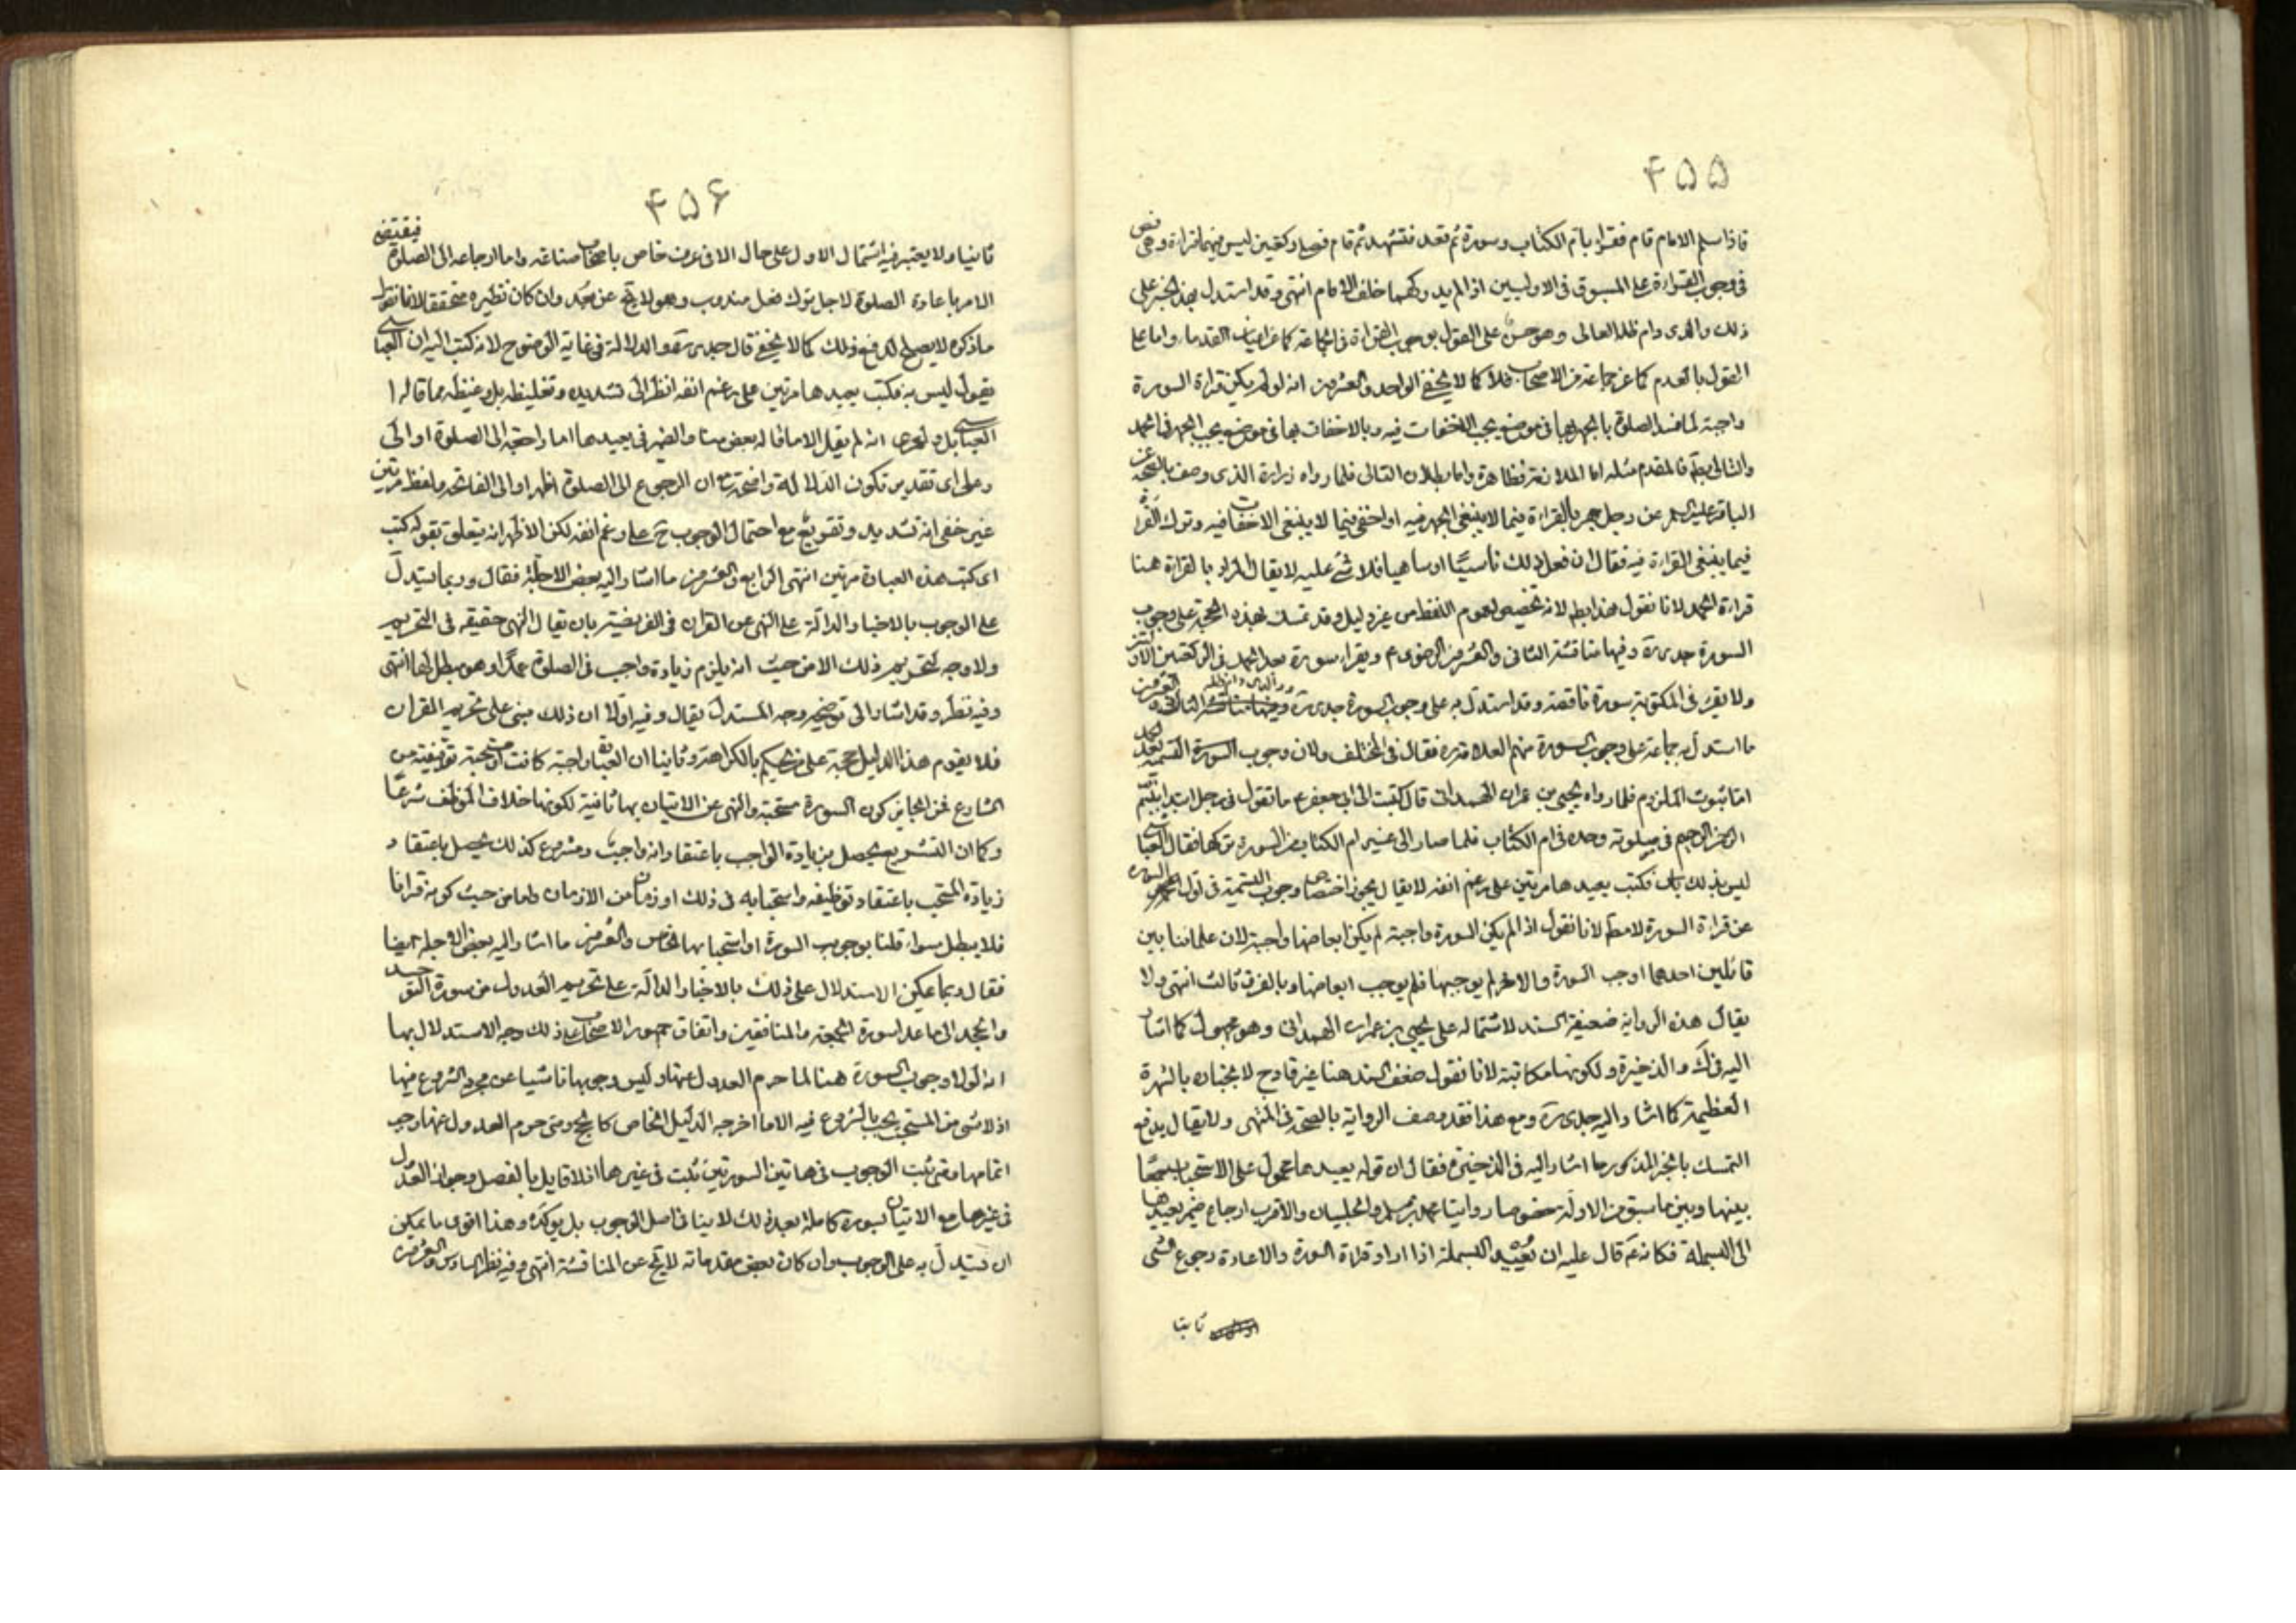 ۴۵۵
فاذا سلم الامام قام فقرا بام الكتاب وسورة ثم قعد فتشهد ثم قام فصلى ركعتين ليس فيهما قراءة وهى نص
فى وجوب القراءة على المسبوق فى الاوليين اذا لم يدركهما خلف الامام انتهى وقد استدل بهذا الخبر على
ذلك والدى دام ظله العالى وهو حسن على القول بوجوب القراءة فى الجماعة كما عن اعيان القدماء واما على
القول بالعدم كما عن جماعة من الاصحاب فلا كما لا يخفى الواحد والعشرون انه لو لم يكن قراءة السورة
واجبة لما فسد الصلوة بالجهر بها فى موضع يجب الاخفات فيه وبالاخفات بها فى موضع يجب الجهر فيه
والتالى بط فالمقدم مثله اما الملازمة فظاهرة واما بطلان التالى فلما رواه زرارة الذى وصف بالصحة عن
الباقر عليه السلم عن رجل جهر بالقراءة فيما لا ينبغى الجهر فيه او اخفى فيما لا ينبغى الاخفات فيه وترك القراءة
فيما ينبغى القراءة فيه فقال ان فعل ذلك ناسيا او ساهيا فلا شئ عليه لا يقال المراد بالقراءة هنا
قراءة الحمد لانا نقول هذا بط لانه تخصيص لعموم اللفظ من غير دليل وقد تمسك بهذه الحجة على وجوب
السورة جدى ره وفيها مناقشة الثانى والعشرون الرضوى ع ويقرا سورة بعد الحمد فى الركعتين الاوليين
ولا يقرء فى المكتوبة سورة ناقصة وقد استدل به على وجوب السورة جدى ره ووالدى دام ظله الثالث والعشرون
ما استدل به جماعة على وجوب السورة منهم العلامة ره فقال فى المختلف ولان وجوب السورة التسمية بعد الحمد
اما ثبوت الملزوم فلما رواه يحيى بن عمران الهمدانى قال كتبت الى ابى جعفر ع ما تقول فى رجل ابتدا ببسم الله
الرحمن الرحيم فى صلوته وحده فى ام الكتاب فلما صار الى غير ام الكتاب من السورة تركها فقال العباسى
ليس بذلك باس فكتب يعيدها مرتين على رغم انفه لا يقال يجوز اختصاص وجوب التسمية فى اول السورة
عن قراءة السورة لا مط لانا نقول اذا لم يكن السورة واجبة لم يكن ابعاضها واجبة لان علمائنا بين
قائلين احدهما اوجب السورة والاخر لم يوجبها فلم يوجب ابعاضها وبالفرق ثالث انتهى ولا
يقال هذه الرواية ضعيفة السند لاشتماله على يحيى بن عمران الهمدانى وهو مجهول كما اشار
اليه فى ك والذخيرة ولكونها مكاتبة لانا نقول ضعف السند هنا غير قادح لانجباره بالشهرة
العظيمة كما اشار اليه جدى ره ومع هذا فقد وصف الرواية بالصحة فى المنتهى ولا يقال يدفع
التمسك بالخبر المذكور ما اشار اليه فى الذخيرة فقال ان قوله يعيدها محمول على الاستحباب جمعا
بينها وبين ما سبق من الادلة خصوصا روايتا محمد بن مسلم والحلبيان والاقرب ارجاع ضمير يعيدها
الى البسملة فكانه ع قال عليه ان يعيد البسملة اذا اراد قراءة السورة والاعادة رجوع الشئ
ثانيا
۴۵۶
ثانيا ولا يعتبر فيه اشتمال الاول على حال الا فى عرف خاص باصحاب صناعة واما ارجاعه الى الصلوة فيقتضى
الامر باعادة الصلوة لاجل ترك فعل مندوب وهو لا يخ عن بعد وان كان نظيره متحققا لانا نقول
ما ذكره لا يصلح لدفع ذلك كما لا يخفى قال جدى ره والدلالة فى غاية الوضوح لانه كتب اليه ان العباسى
يقول ليس به فكتب يعيدها مرتين على رغم انفه انظر الى تشديده وتغليظه بل وغيظه مما قاله
العباسى بل ولعمرى انه لم يقل الا ما قاله بعض منا والضمير فى يعيدها اما راجعة الى الصلوة او الى
وعلى اى تقدير تكون الدلالة واضحة مع ان الرجوع الى الصلوة اظهر او الى الفاتحة ولفظ مرتين
غير خفى انه تشديد وتقويع مع احتمال الوجوب ح على رغم انفه لكن الاظهر انه يتعلق بقوله كتب
اى كتب هذه العبارة مرتين انتهى الرابع والعشرون ما اشار اليه بعض الاجلة فقال وربما يستدل
على الوجوب بالاخبار الدالة على النهى عن القران فى الفريضة بان يقال النهى حقيقة فى التحريم
ولا وجه لتحريم ذلك الا من حيث انه يلزم زيادة واجب فى الصلوة عمدا وهو مبطل لها انتهى
وفيه نظر وقد اشار الى توضيح وجه المستدل يقال وفيه اولا ان ذلك مبنى على تحريم القران
فلا يقوم هذا الدليل حجة على من يحكم بالكراهة وثانيا ان العبادة واجبة كانت او مستحبة توقيفية من
الشارع فمن الجايز كون السورة مستحبة والنهى عن الاتيان بها ثانية لكونها خلاف الموظف شرعا
وكما ان التشريع يحصل بزيادة الواجب باعتقاد انه واجب ومشروع كذلك يحصل باعتقاد
زيادة المستحب باعتقاد توظيفه واستحبابه فى ذلك او زمان من الازمان واما من حيث كونه قرانا
فلا يبطل سواء قلنا بوجوب السورة او استحبابها الخامس والعشرون ما اشار اليه بعض الاجلة ايضا
فقال وبما يمكن الاستدلال على ذلك بالاخبار الدالة على تحريم العدول من سورة التوحيد
والجحد الى ما عدا سورة الجمعة والمنافقين واتفاق جمهور الاصحاب على ذلك وجه الاستدلال بها
انه لولا وجوب السورة هنا لما حرم العدول عنها وليس وجوبها ناشيا عن مجرد الشروع فيها
اذ لا شئ من المستحب يجب بالشروع فيه الا ما اخرجه الدليل الخاص كالحج ومتى حرم العدول عنها وجب
اتمامها ومتى ثبت الوجوب فى هاتين السورتين ثبت فى غيرهما اذ لا قايل بالفصل وجواز العدول
فى غيرها مع الاتيان بسورة كاملة بعد ذلك لا ينافى اصل الوجوب بل يوكده وهذا اقوى ما يمكن
ان يستدل به على الوجوب وان كان بعض مقدماته لا يخ عن المناقشة انتهى وفيه نظر السادس والعشرون